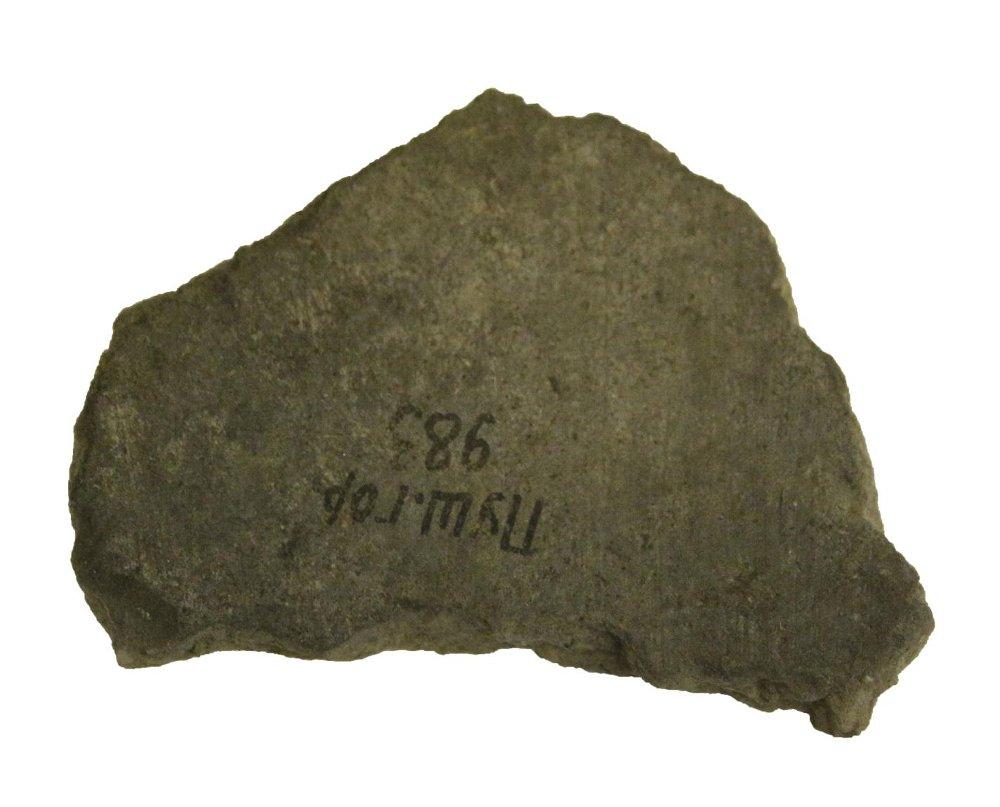 Пуш.гор
983